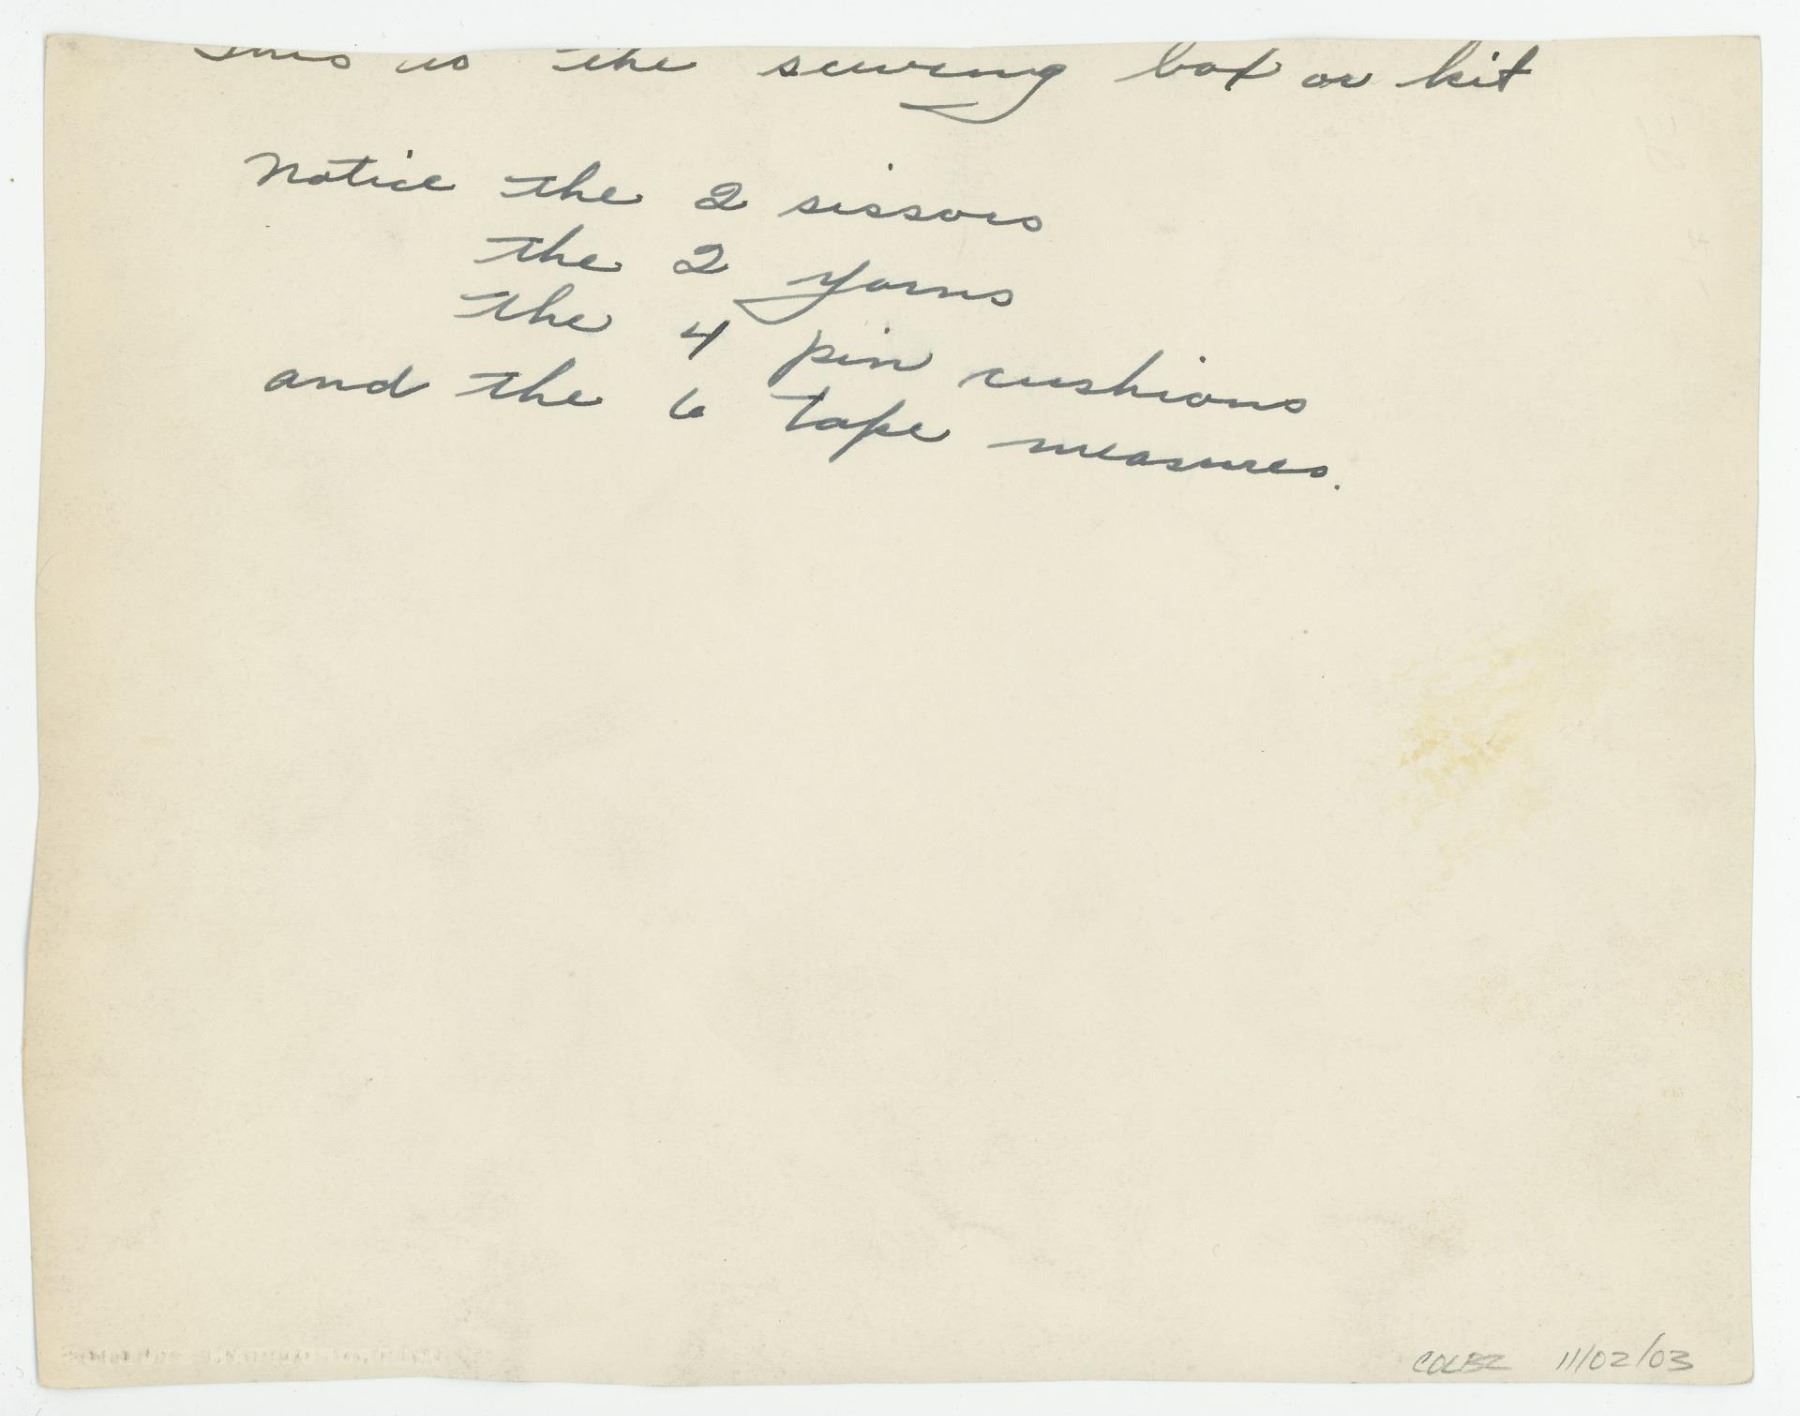 This is the sewing box or kit
Notice the 2 sissors
the 2 yarns
the 4 pin cushions
and the 6 tape measures.
11/02/03